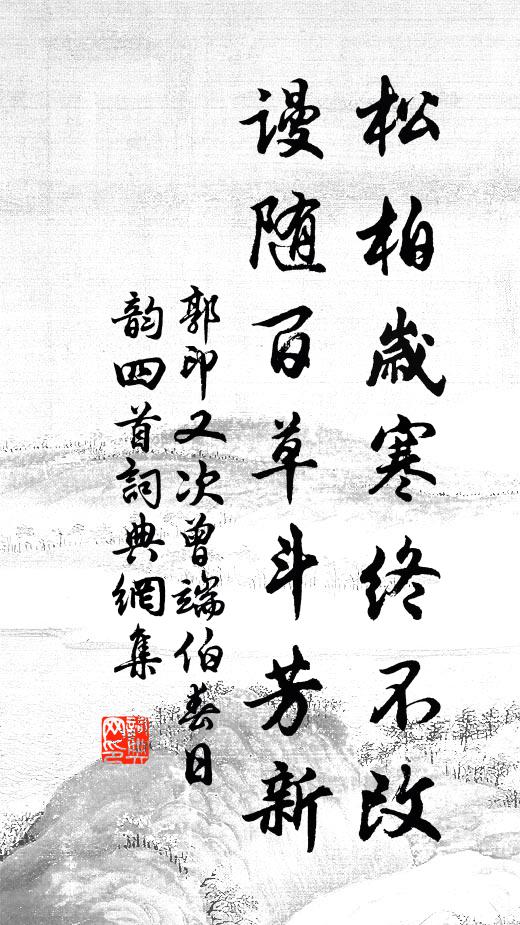 松柏歲寒終不改
谩随百草斗芳新
郭印又次曾端伯春日
韵四首詞典網集